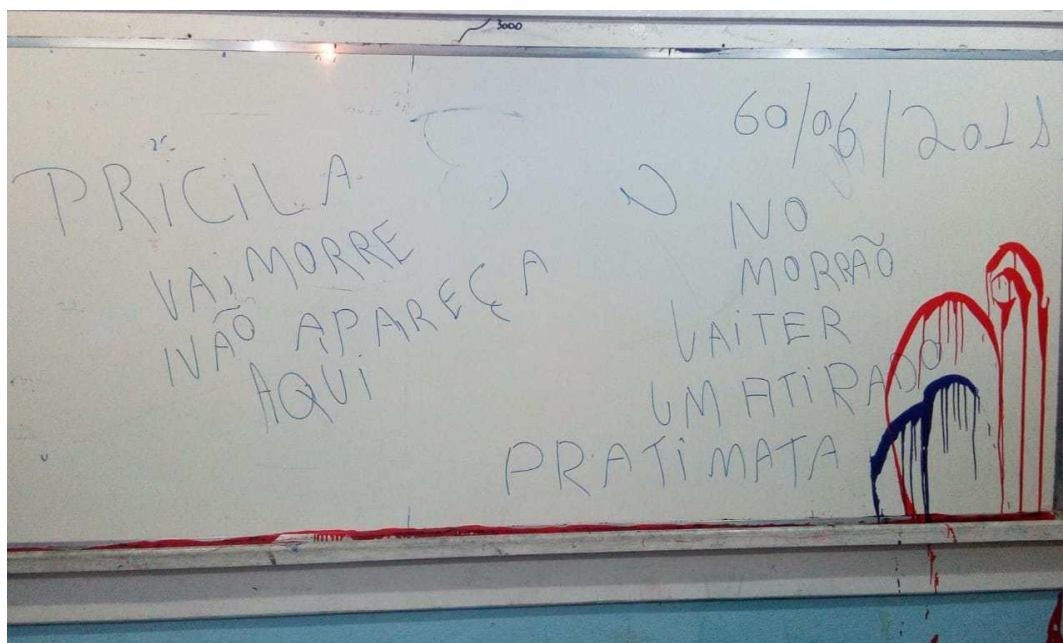 3000
PRICILA
VAI MORRE
NÃO APAREÇA
AQUI
60/06/2018
NO
MORRÃO
VAITER
UM ATIRADO
PRATIMATA